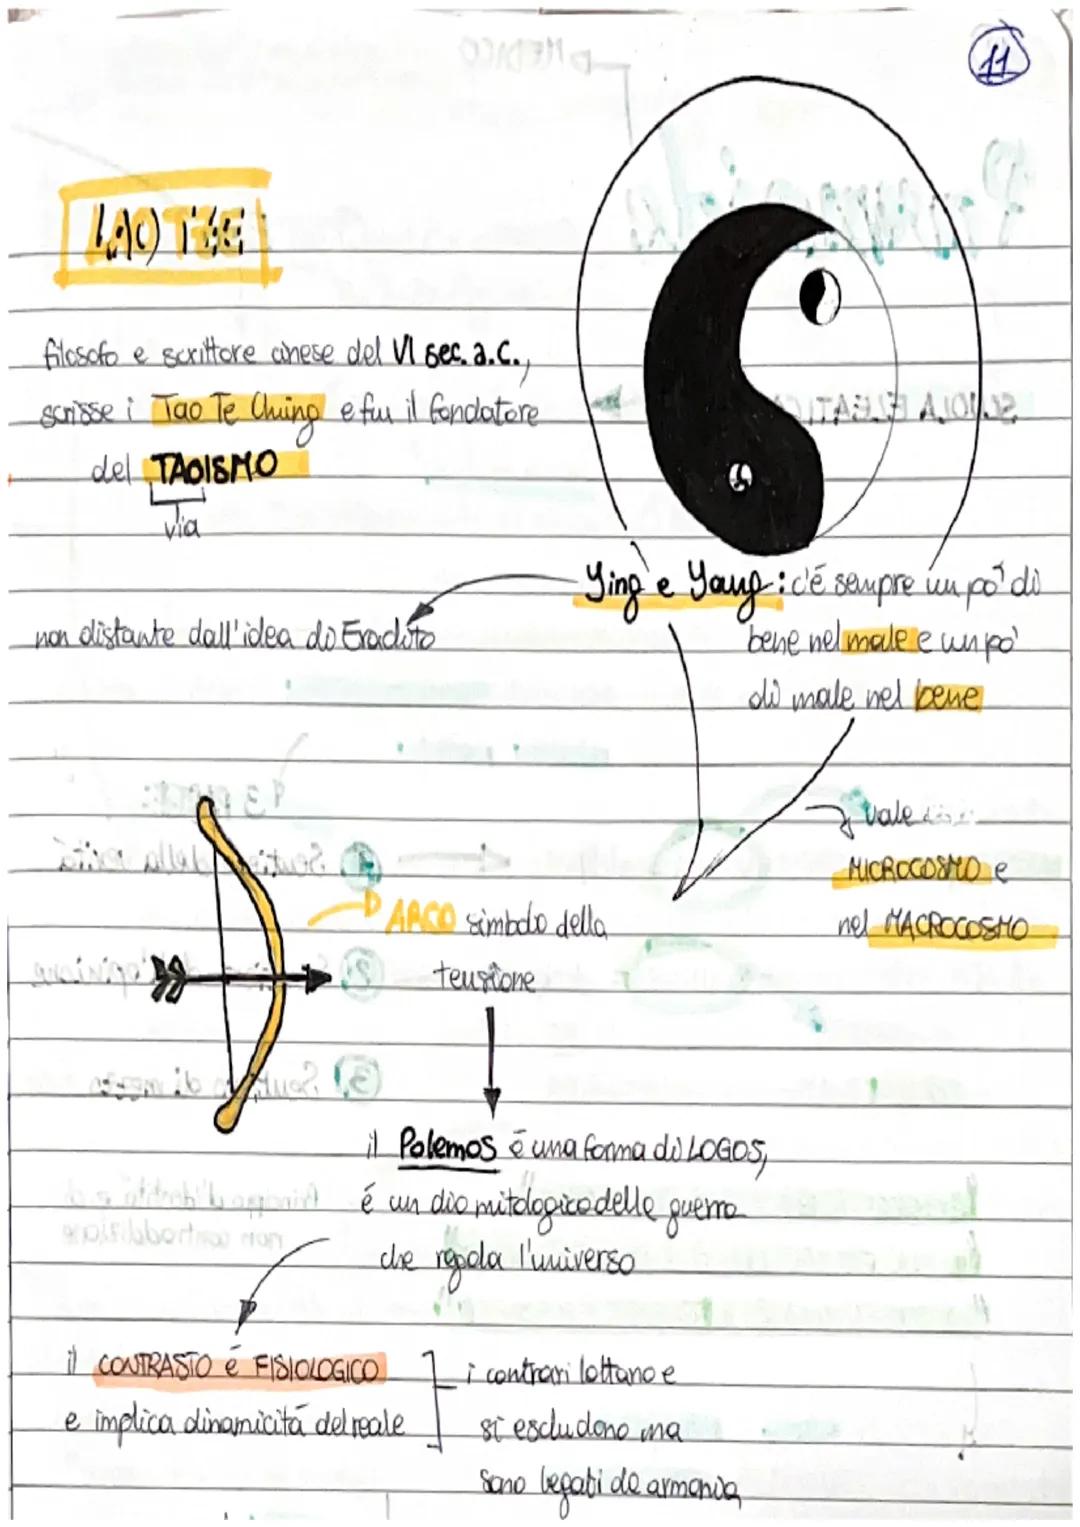 11
LAO TSE
filosofo e scrittore cinese del VI sec. a.C.,
scrisse i Tao Te Ching e fu il fondatore
del TAOISMO
via
Ying e Yang: c'é sempre un po' di
bene nel male e un po'
di male nel bene
non distante dall'idea di Eraclito
vale
MICROCOSMO e
nel MACROCOSMO
ARCO simbolo della
tensione
il Polemos é una forma di LOGOS,
é un dio mitologico della guerra
che regola l'universo
il CONTRASTO é FISIOLOGICO
e implica dinamicitá del reale
i contrari lottano e
si escludono ma
sono legati da armonia